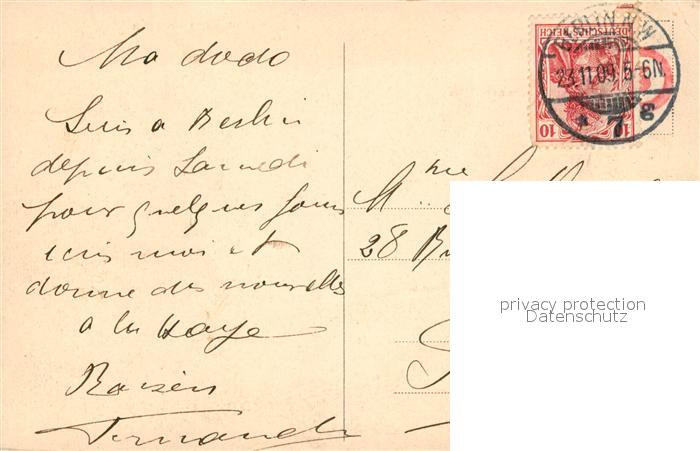 Ma dodo
Suis a Berlin
depuis Samedi
pour quelques jours
ecris moi et
donne des nouvelles
a la Haye
Baisers
Fernande
DEUTSCHES REICH
10 10
BERLIN N.W.
23.11.09. 5-6N.
* 7 g
M
28
privacy protection
Datenschutz